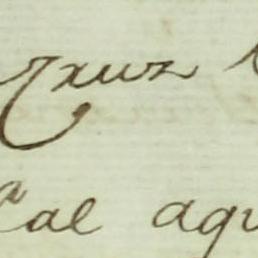 Cruz
cal aqu